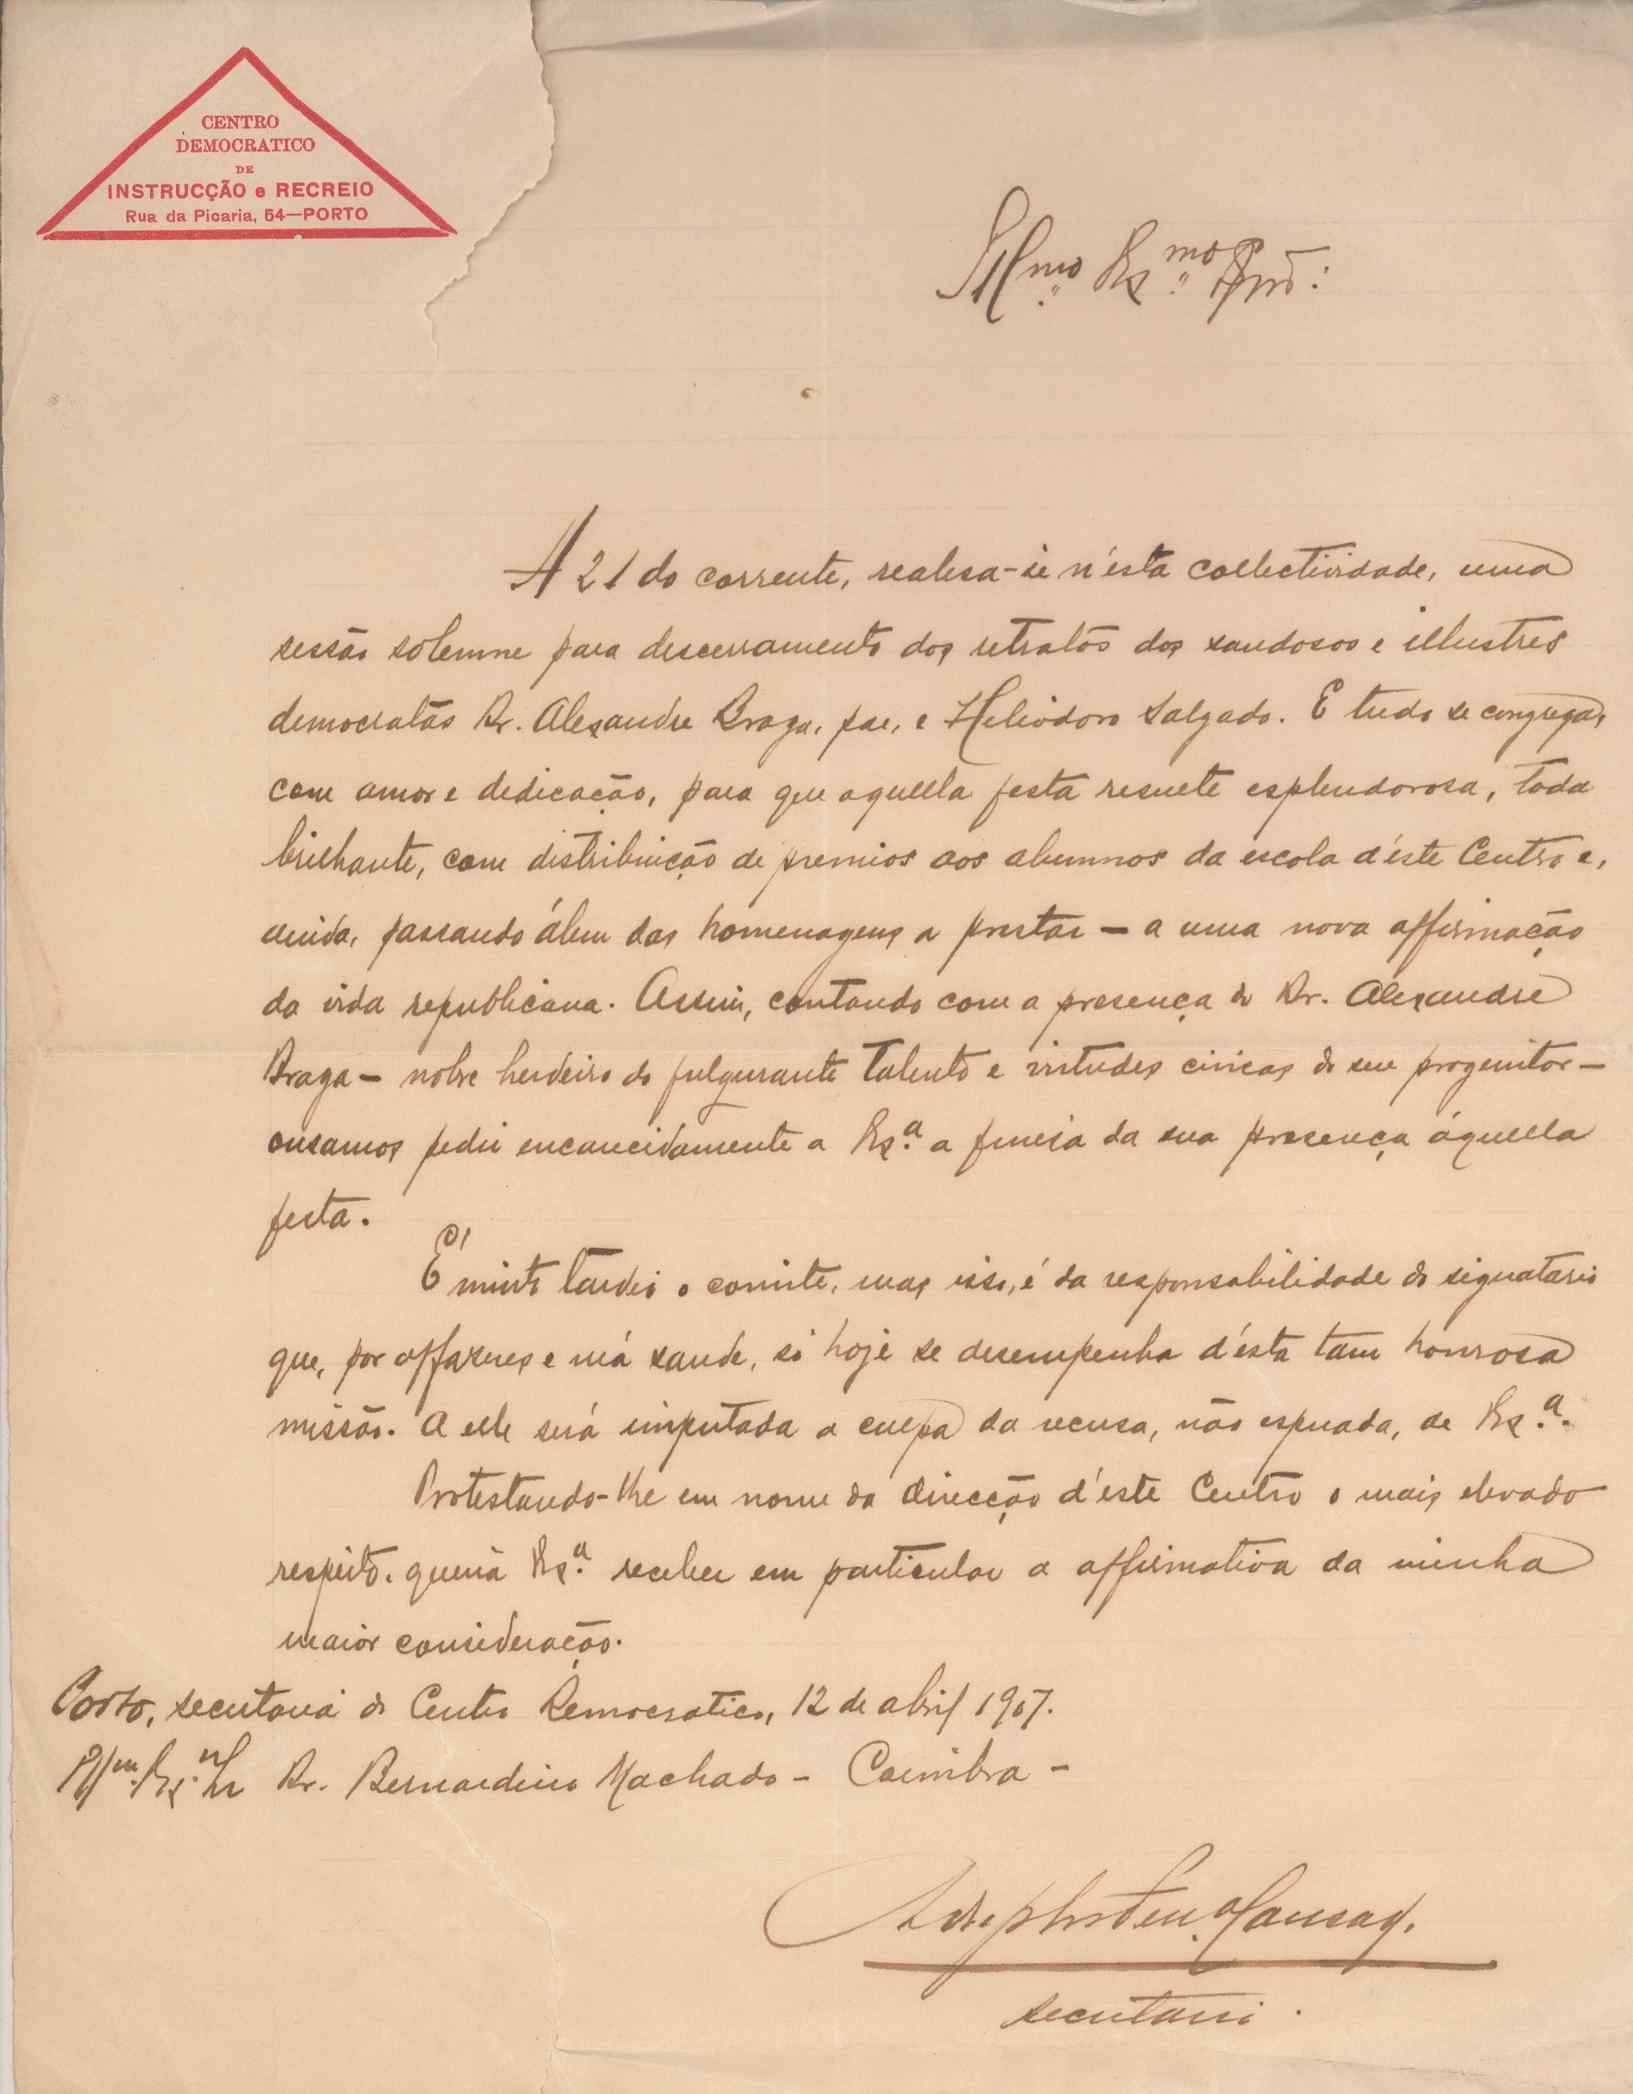 CENTRO
DEMOCRATICO
DE
INSTRUCÇÃO e RECREIO
Rua da Picaria, 54—PORTO
Ill.mo Ex.mo Snr.:
A 21 do corrente, realisa-se n'ésta collectividade, uma
sessão solemne para descerramento dos retratos dos saudosos e illustres
democratas Dr. Alexandre Braga, pae, e Heliodoro Salgado. E tudo se congrega,
com amor e dedicação, para que aquella festa resulte esplendorosa, toda
brilhante, com distribuição de premios aos alumnos da escola d'éste Centro e,
ainda, passando álem das homenagens a prestar — a uma nova affirmação
da vida republicana. Assim, contando com a presença do Dr. Alexandre
Braga — nobre herdeiro do fulgurante talento e virtudes civicas do seu progenitor —
ousamos pedir encarecidamente a Ex.ª a fineza da sua presença áquella
festa.
É muito tardio o convite, mas isso, é da responsabilidade do signatario
que, por affazeres e má saude, só hoje se desempenha d'ésta tam honrosa
missão. A elle será imputada a culpa da recusa, não esperada, de Ex.ª.
Protestando-lhe em nome da direcção d'éste Centro o mais elevado
respeito, queira Ex.ª receber em particular a affirmativa da minha
maior consideração.
Porto, secretaria do Centro Democratico, 12 de abril 1907.
Ill.mo Ex.mo Sr. Dr. Bernardino Machado — Coimbra —
secretario.